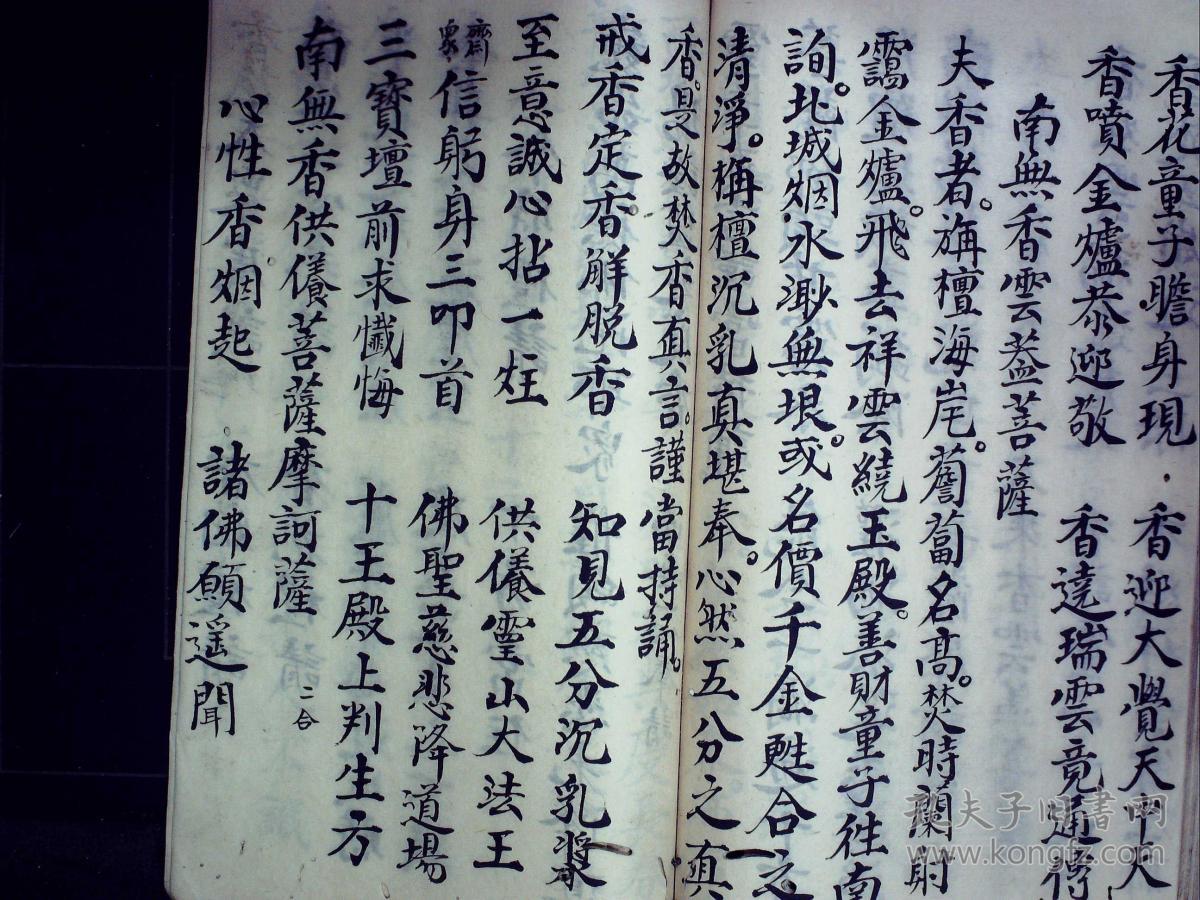 香花童子瞻身現 香迎大覺天中天
香噴金爐恭迎敬 香遶瑞雲竟通傳
南無香雲蓋菩薩
夫香者。旃檀海岸。薝蔔名高。焚時蘭射
靄金爐。飛去祥雲繞玉殿。善財童子徃南
詢。北城烟水渺無垠。或名價千金甦合之
清淨。栴檀沉乳真堪奉。心然五分之真
香。是故焚香真言。謹當持誦。
戒香定香解脱香 知見五分沉乳
至意誠心拈一炷 供儀靈山大法王
齋衆信躬身三叩首 佛聖慈悲降道場
三寶壇前求懺悔 十王殿上判生方
南無香供儀菩薩摩訶薩 二合
心性香烟起 諸佛願遥聞
夫子旧书网
www.kongfz.com